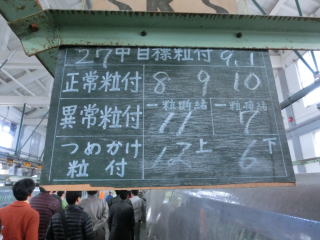 27中目標粒付 9.1
正常粒付 8 9 10
異常粒付 一粒 11 一粒 7
つめかけ粒付 12上 6下